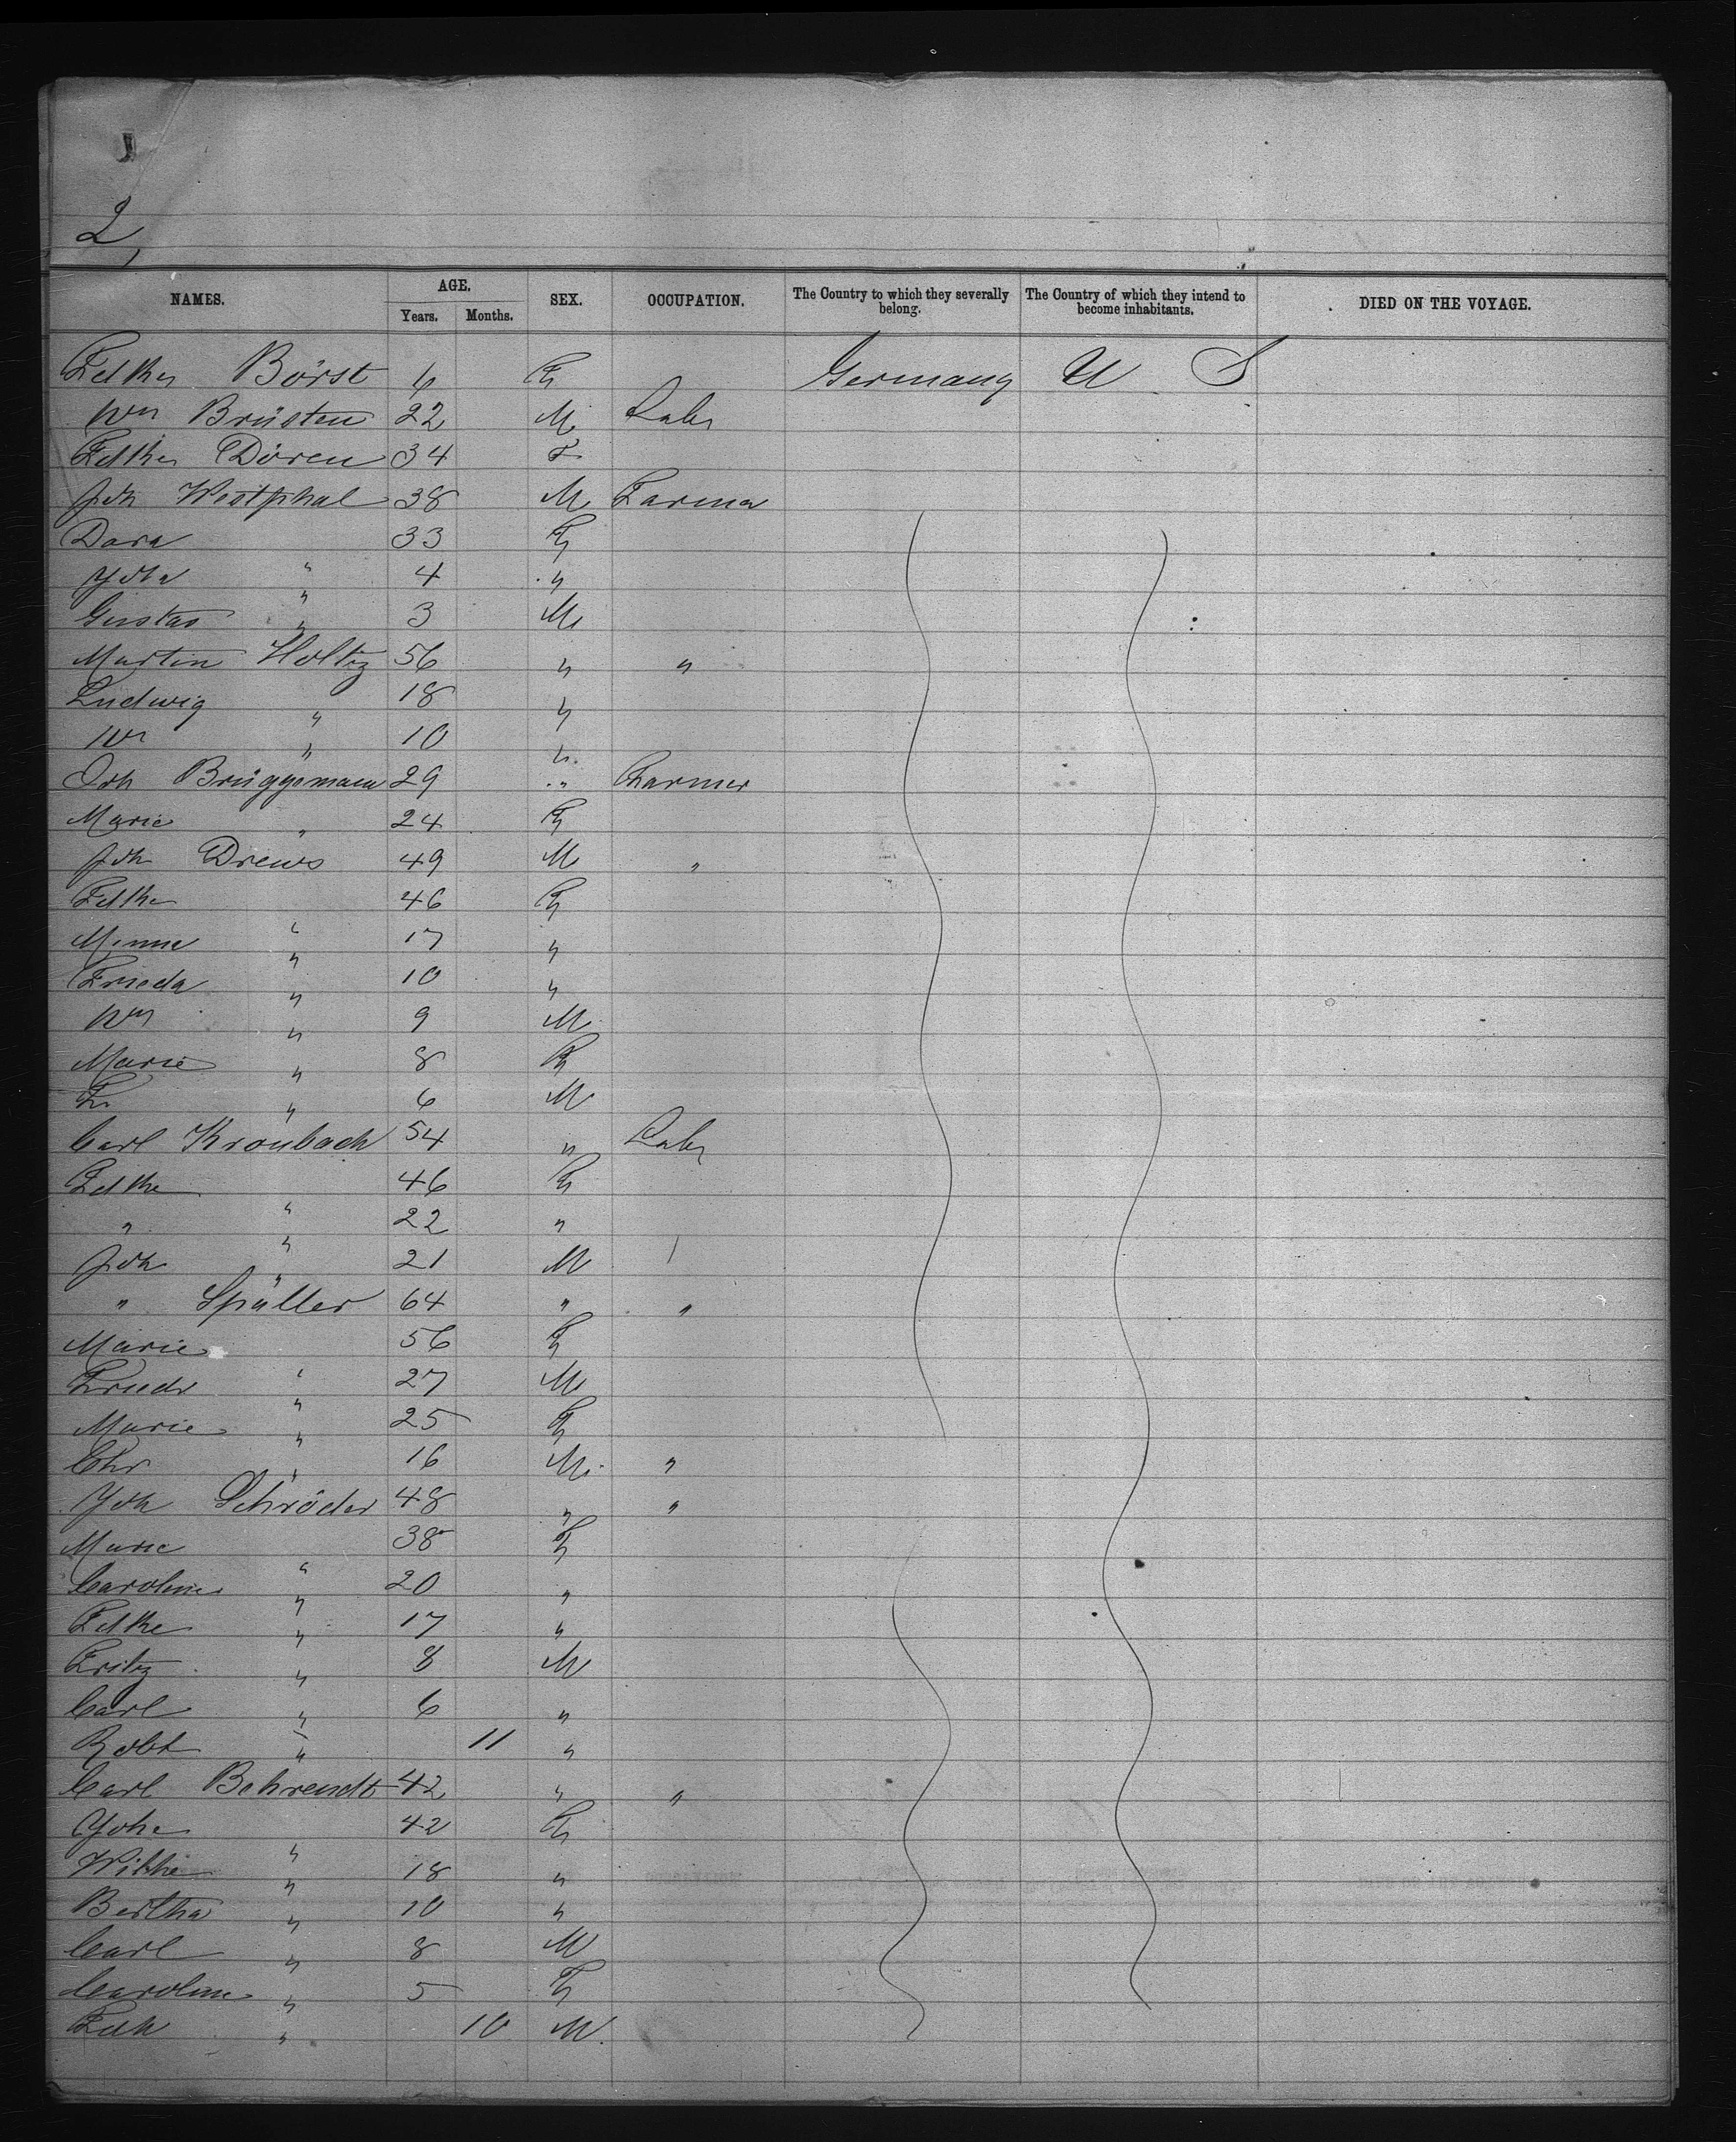 2,
NAMES. AGE. Years. Months. SEX. OCCUPATION. The Country to which they severally belong. The Country of which they intend to become inhabitants. DIED ON THE VOYAGE.
Börst 6 F Germany U S
Wm Brüsten 22 M Labr
Döven 34 F
Joh Westphal 38 M Farmer
Dora 33 F
" 4 "
Gustav " 3 M
Martin Holtz 56 " "
Ludwig " 18 "
Wm " 10 "
Joh Brüggemann 29 " Farmer
Marie " 24 F
Joh Drews 49 M "
Fdke 46 F
Minna " 17 "
Frieda " 10 "
Wm " 9 M
Marie " 8 F
Fr " 6 M
Carl Kronbach 54 " Labr
Fdke 46 F
" " 22 "
Joh " 21 M
" Spüller 64 " "
Marie 56 F
Friedr " 27 M
Marie " 25 F
Chr " 16 M "
Joh Schröder 48 " "
Marie 38 F
Caroline " 20 "
Fdke " 17 "
Fritz " 8 M
Carl " 6 "
Robt " 11 "
Carl Behrendt 42 " "
Johe 42 F
" 18 "
Bertha " 10 "
Carl " 8 M
Caroline " 5 F
" 10 M